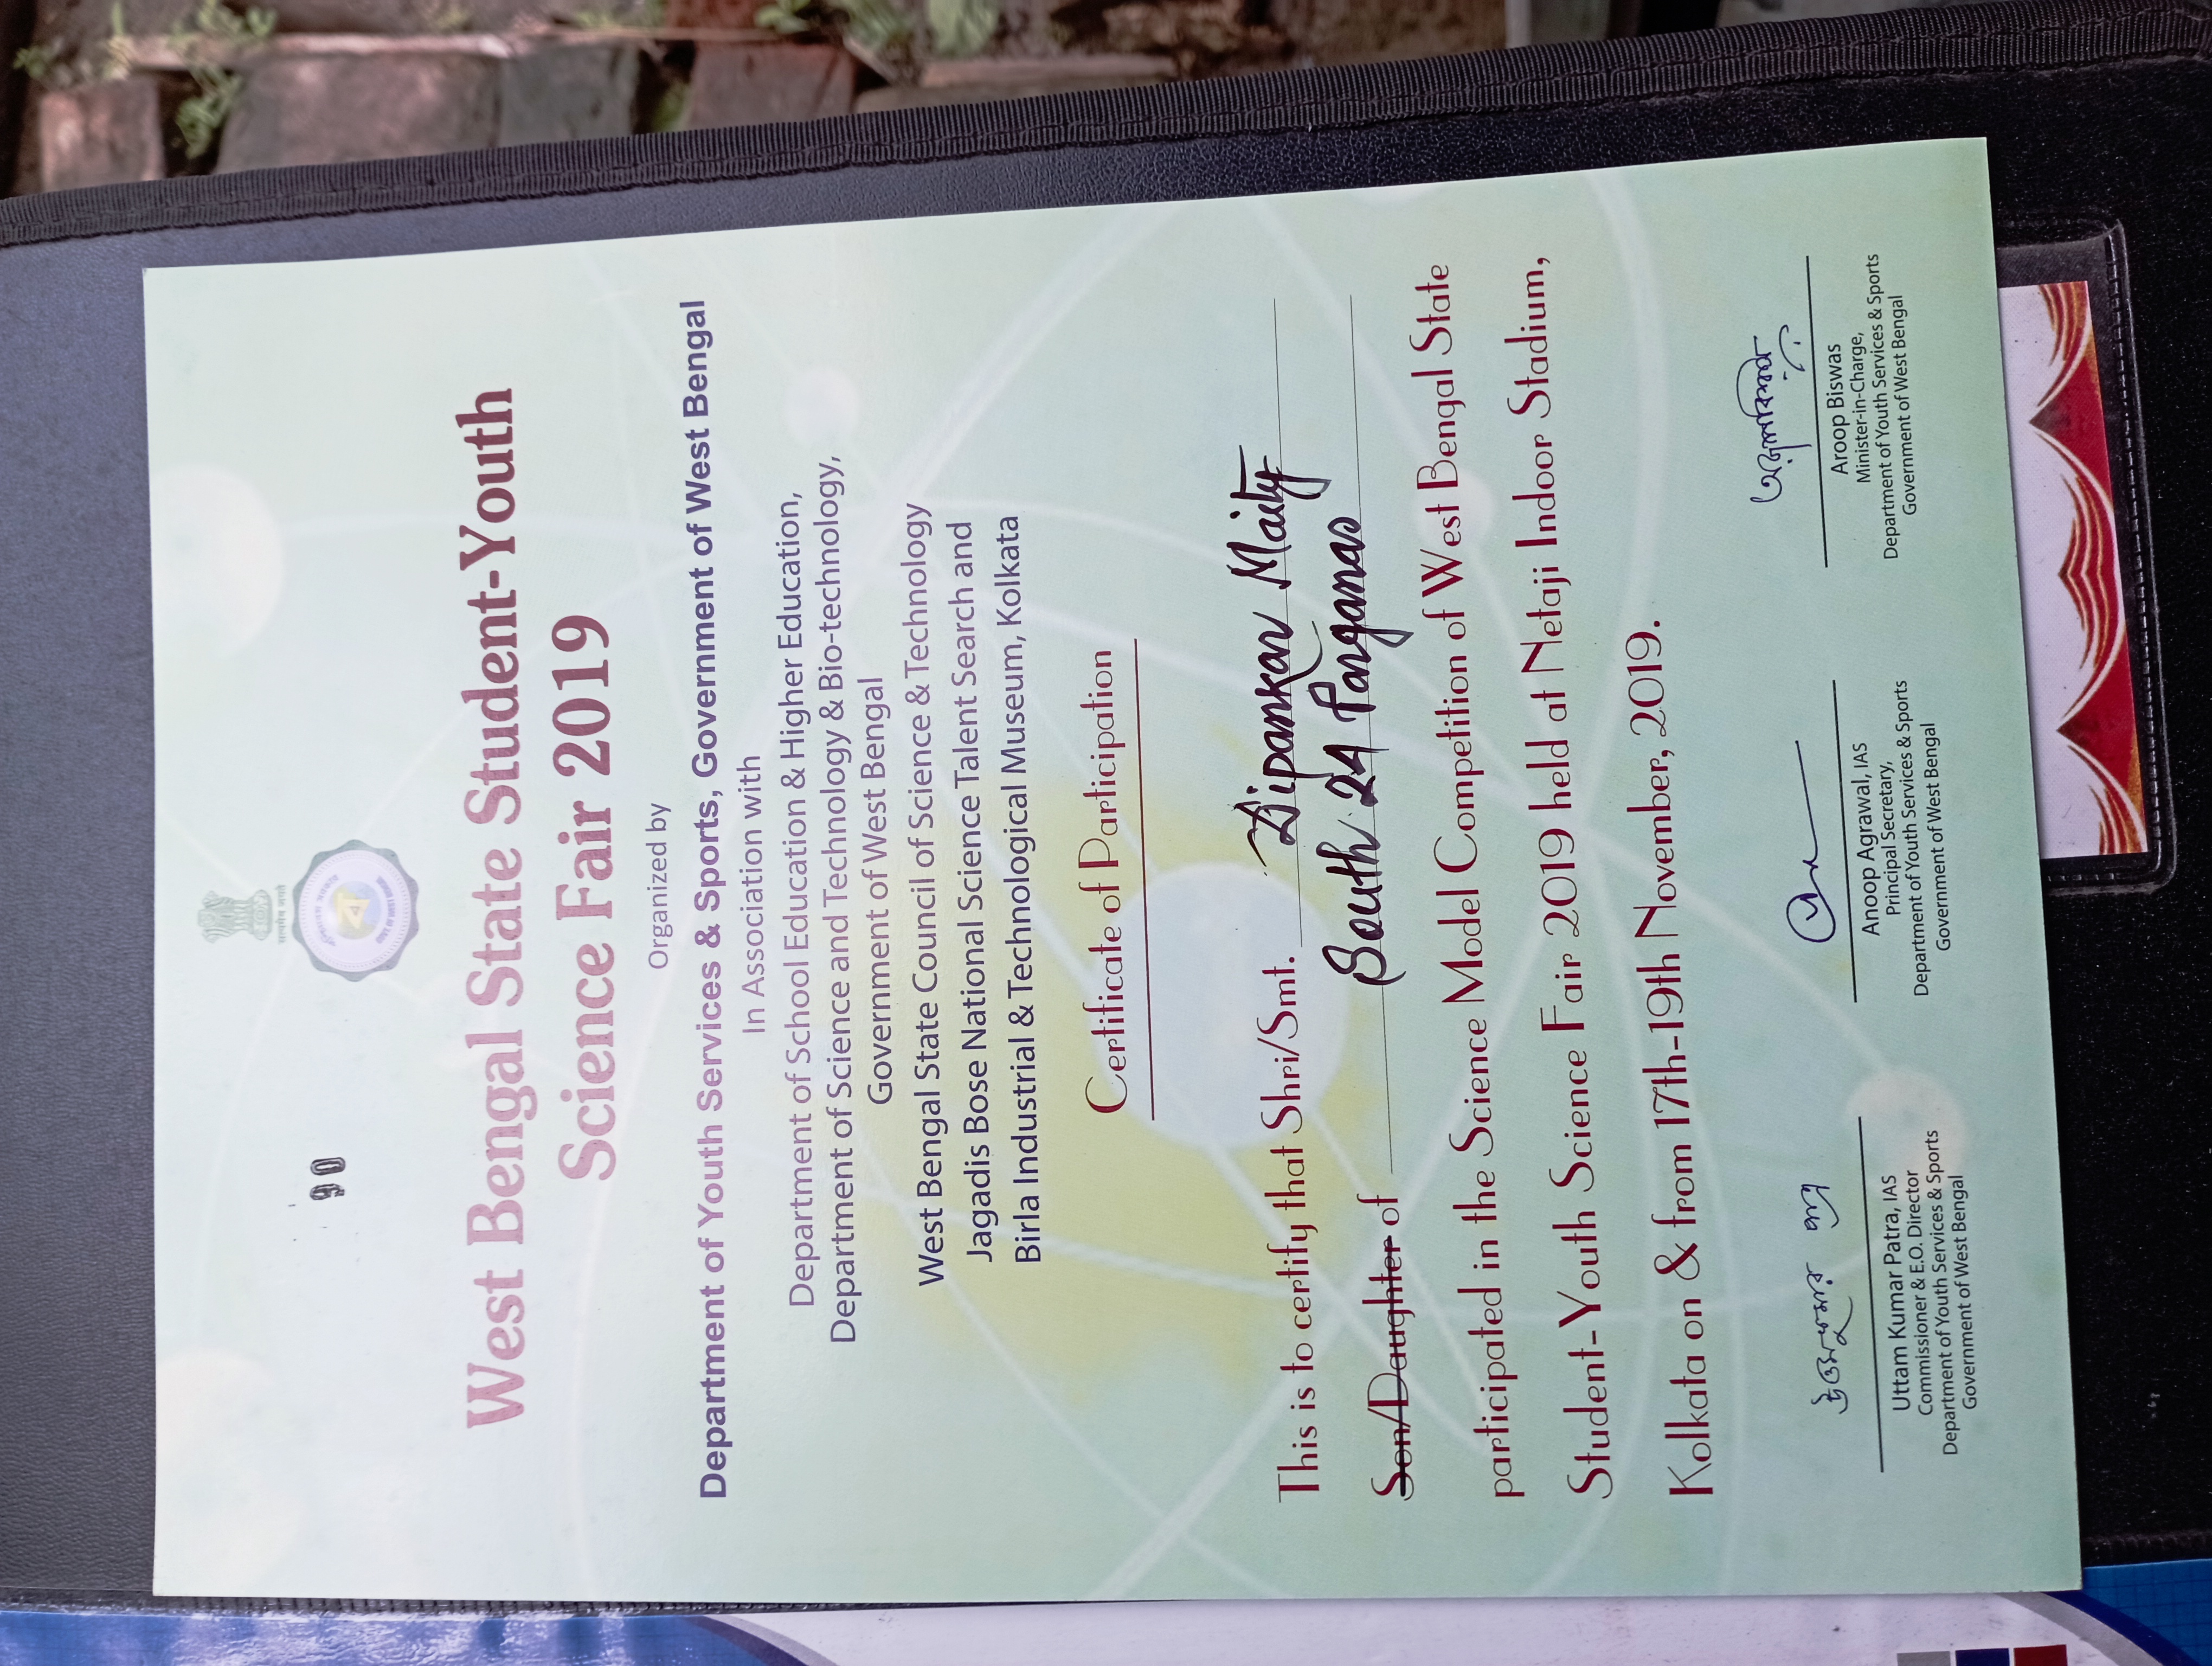 सत्यमेव जयते
90
GOVT. OF WEST BENGAL
West Bengal State Student-Youth
Science Fair 2019
Organized by
Department of Youth Services & Sports, Government of West Bengal
In Association with
Department of School Education & Higher Education,
Department of Science and Technology & Bio-technology,
Government of West Bengal
West Bengal State Council of Science & Technology
Jagadis Bose National Science Talent Search and
Birla Industrial & Technological Museum, Kolkata
Certificate of Participation
This is to certify that Shri/Smt. Dipankar Maity
Son/Daughter of South 24 Parganas
participated in the Science Model Competition of West Bengal State
Student-Youth Science Fair 2019 held at Netaji Indoor Stadium,
Kolkata on & from 17th-19th November, 2019.
উত্তমকুমার পাত্র
Uttam Kumar Patra, IAS
Commissioner & E.O. Director
Department of Youth Services & Sports
Government of West Bengal
Anoop Agrawal, IAS
Principal Secretary,
Department of Youth Services & Sports
Government of West Bengal
Aroop Biswas
Minister-in-Charge,
Department of Youth Services & Sports
Government of West Bengal